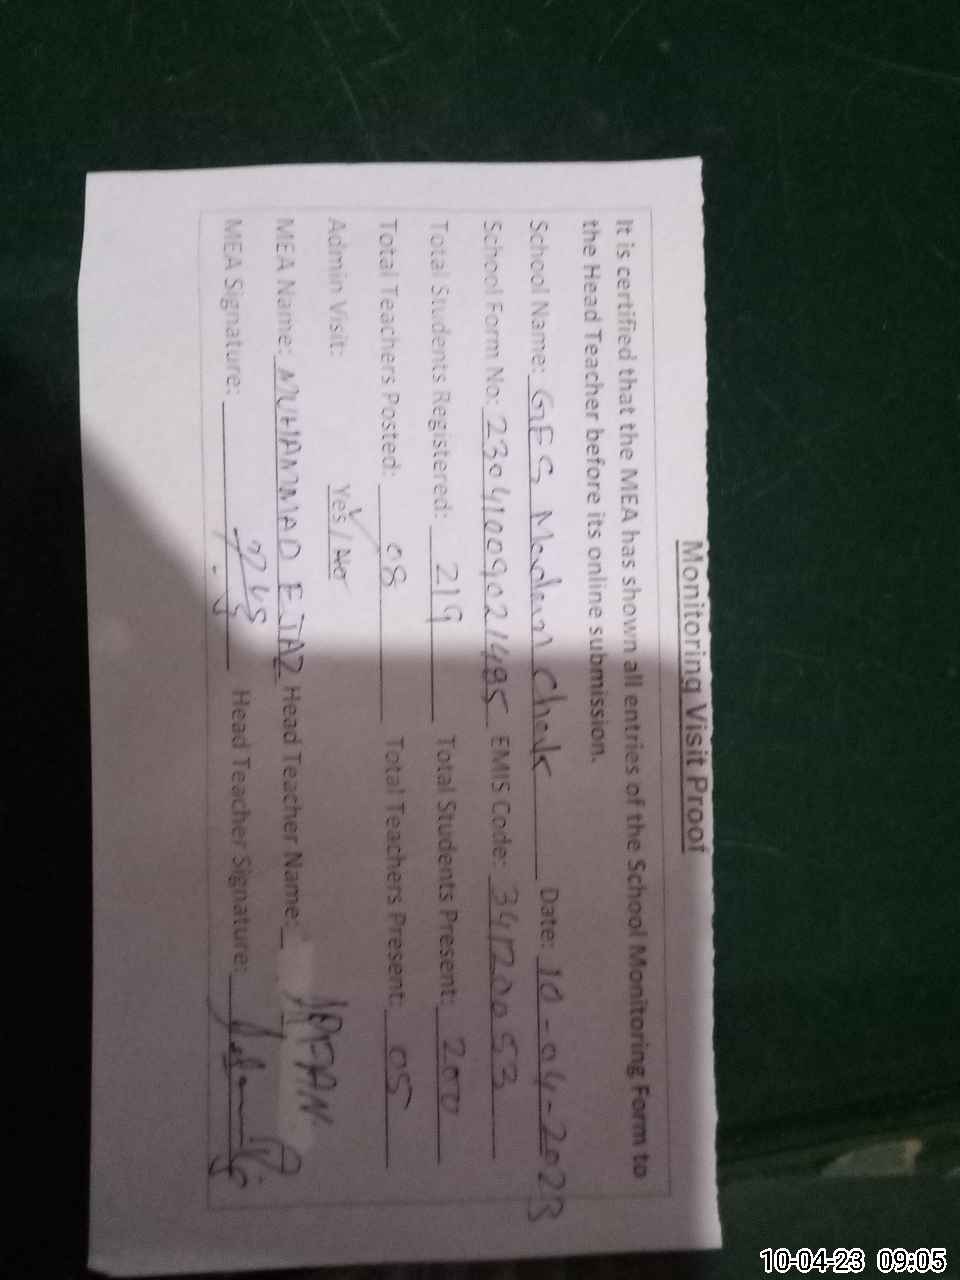 Monitoring Visit Proof
It is certified that the MEA has shown all entries of the School Monitoring Form to
the Head Teacher before its online submission.
School Name: GES Chak Date: 10-04-2023
School Form No: 23041009021485 EMIS Code: 34120053
Total Students Registered: 219 Total Students Present: 200
Total Teachers Posted: 08 Total Teachers Present: 05
Admin Visit: Yes / No
MEA Name: MUHAMMAD EJAZ Head Teacher Name:
MEA Signature: Head Teacher Signature:
10-04-23 09:05